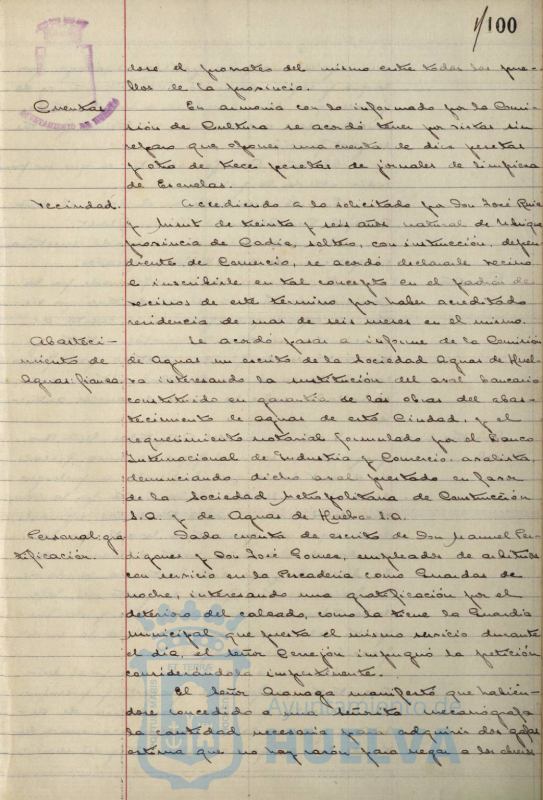 1/100
dose el prorrateo del mismo entre todos los pue-
blos de la provincia.
Cuentas
En armonia con lo informado por la Comi-
sión de Cultura se acordó tener por vistas sin
reparo que oponer una cuenta de diez pesetas
y otra de trece pesetas de jornales de limpieza
de Escuelas.
Vecindad.
Accediendo a lo solicitado por Don José Ruiz
y de treinta y seis años natural de Ubrique
provincia de Cadiz, soltero, con instrucción, depen-
diente de Comercio, se acordó declararle vecino
e inscribirle en tal concepto en el padrón de
vecinos de este término por haber acreditado
residencia de mas de seis meses en el mismo.
Abasteci-
miento de
Aguas: fianza.
Se acordó pasar a informe de la Comisión
de Aguas un escrito de la Sociedad Aguas de Huel-
va interesando la sustitución del aval bancario
constituido en garantia de las obras del abas-
tecimiento de aguas de esta Ciudad, y el
requerimiento notarial formulado por el Banco
Internacional de Industria y Comercio avalista,
denunciando dicho aval prestado en favor
de la Sociedad Metropolitana de Construcción
S.A. y de Aguas de Huelva S.A.
Personal: gra-
tificación.
Dada cuenta de escrito de Don Manuel Per-
digones y Don José Gomez, empleados de arbitrios
con servicio en la Pescaderia como Guardas de
noche, interesando una gratificación por el
deterioro del calzado, como la tiene la Guardia
Municipal que presta el mismo servicio durante
el dia, el señor Cerrejón impugnó la petición
considerandola impertinente.
El Señor manifestó que habién-
dose concedido a una señorita mecanógrafa
la cantidad necesaria para adquirir dos gafas
estima que no hay razón para negar a los obreros
AYUNTAMIENTO DE HUELVA
Ayuntamiento de
HUELVA